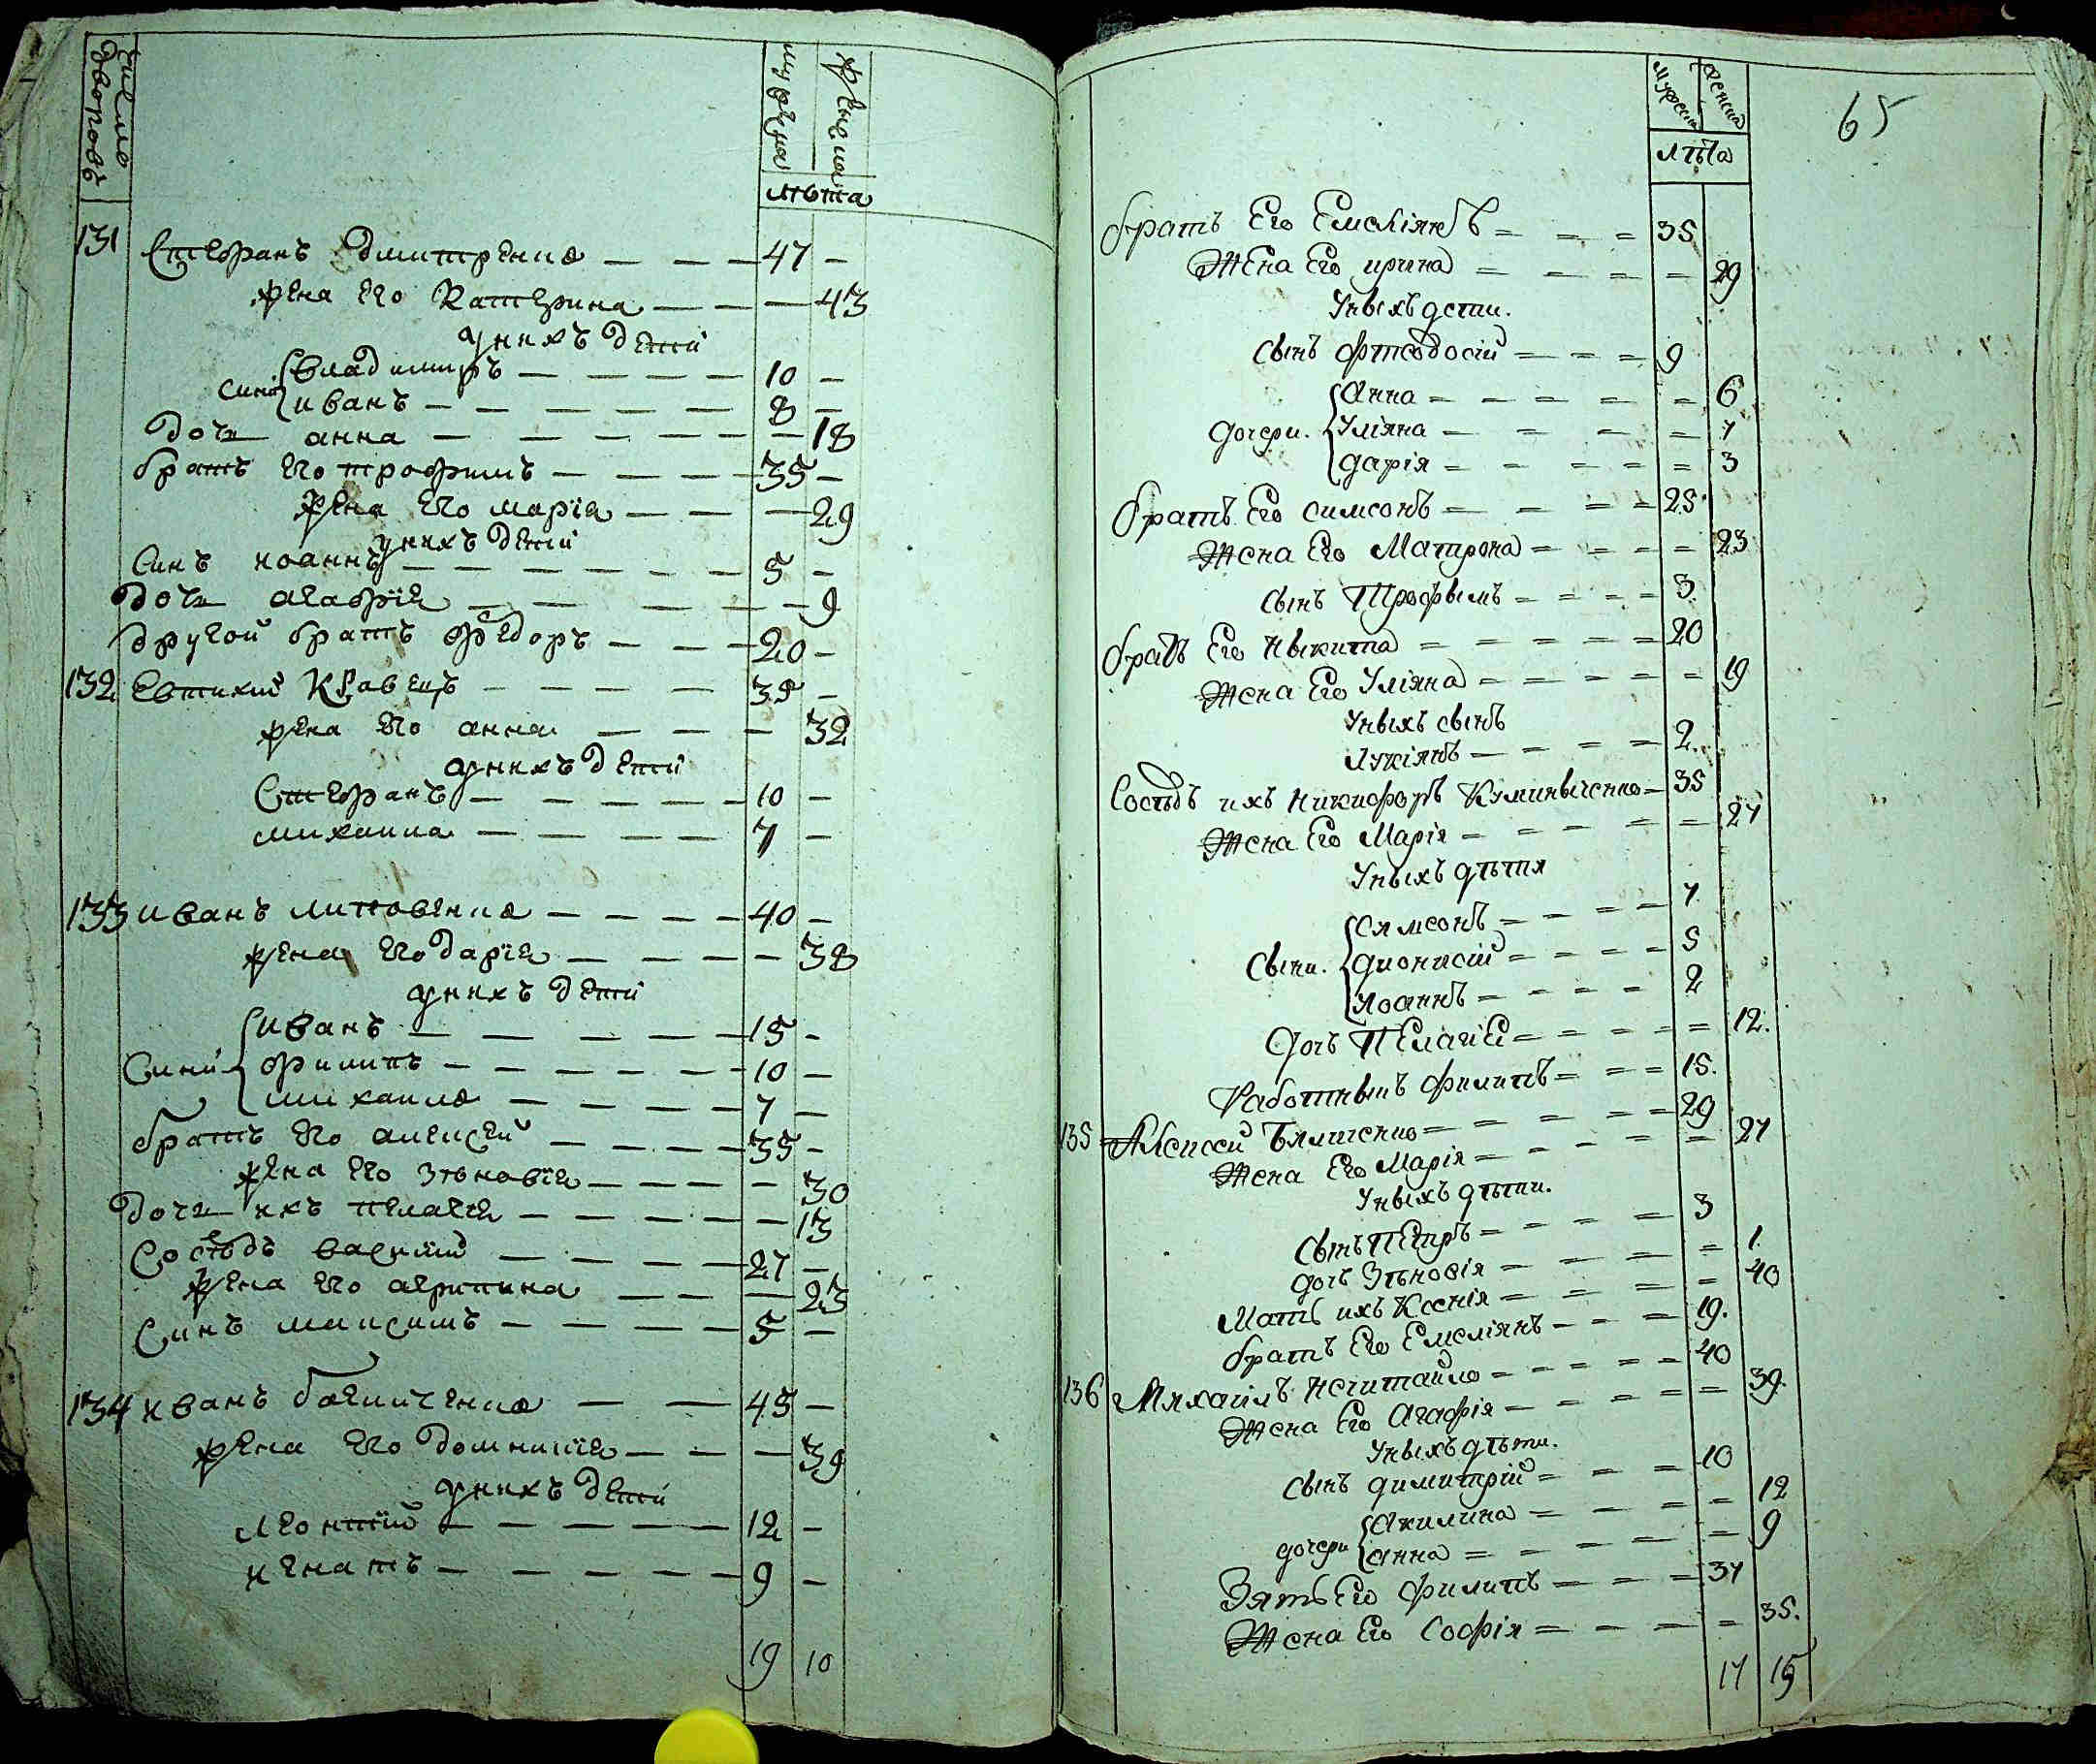 число дворовъ
мужеска
женска
лѣта
131 Стефанъ Дмитренко 47 -
жена его Катерина - 43
у нихъ дети
Сини Владимиръ 10 -
иванъ 8 -
Дочь анна - 18
братъ его трофимъ 35 -
жена его марїя - 29
у нихъ дети
Синъ иоаннъ 5 -
Дочь агафїя - 9
другой братъ Федоръ 20 -
132 Евтихий Кравецъ 39 -
жена его анна - 32
у нихъ дети
Стефанъ 10 -
михаила 7 -
133 иванъ литовченко 40 -
жена его дарїя - 38
у нихъ дети
Сини иванъ 15 -
филипъ 10 -
михаила 7 -
братъ его алексей 35 -
жена его зѣновїя - 30
Дочь ихъ пелагея - 13
Сосѣдъ василий 27 -
жена его агрипина - 23
Синъ максимъ 5 -
134 иванъ 45 -
жена его домникия - 39
у нихъ дети
леонтий 12 -
игнатъ 9 -
19 10
65
мужеска
женска
лѣта
братъ Его Емелїянъ 35
Жена Его ирина 29
У ныхъ дети.
сынъ Фтеодосій 9
Анна 6
дочери. Улїяна 7
дарія 3
братъ Его симсонъ 25
Жена Его Матрона 23
сынъ Трофымъ 3
братъ Его Ныкита 20
Жена Его Улїяна 19
У ныхъ сынъ
Лукіянъ 2
Сосѣдъ ихъ Никифоръ Куминыченко 35
Жена Его Марія 27
У ныхъ дѣтя
Сямсонъ 7
Сыни. Дионисій 5
Иоаннъ 2
Дочь Пелагія 12.
Работныкъ Филипъ 15.
135 Алексей Бяличенко 29
Жена Его Марія 27
У ныхъ дѣти.
Сынъ Петръ 3
дочь Зѣновія 1
Мать ихъ Ксенія 40
братъ Его Емеліянъ 19.
136 Михаилъ Нечитайло 40
Жена Его Агафія 39.
У ныхъ дѣти.
Сынъ Димитрій 10
дочери Акилина 12
Анна 9
Зять Его Филипъ 37
Жена Его Софія 35.
17 15